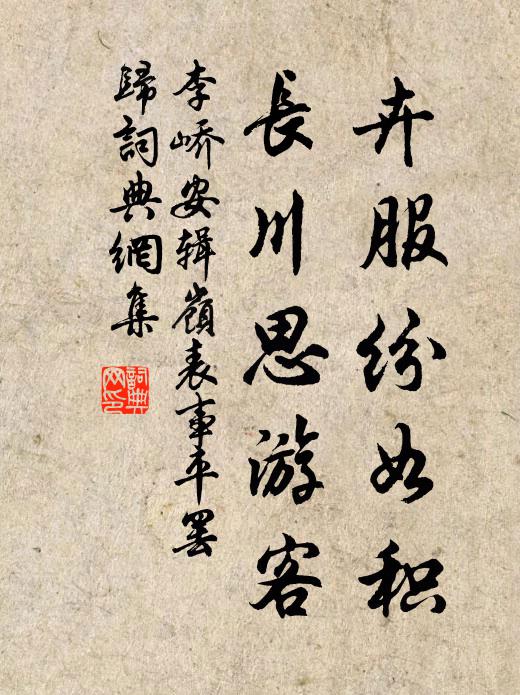 卉服纷如积
長川思游客
李嶠安辑嶺表事平罢
歸詞典網集
詞典
网印